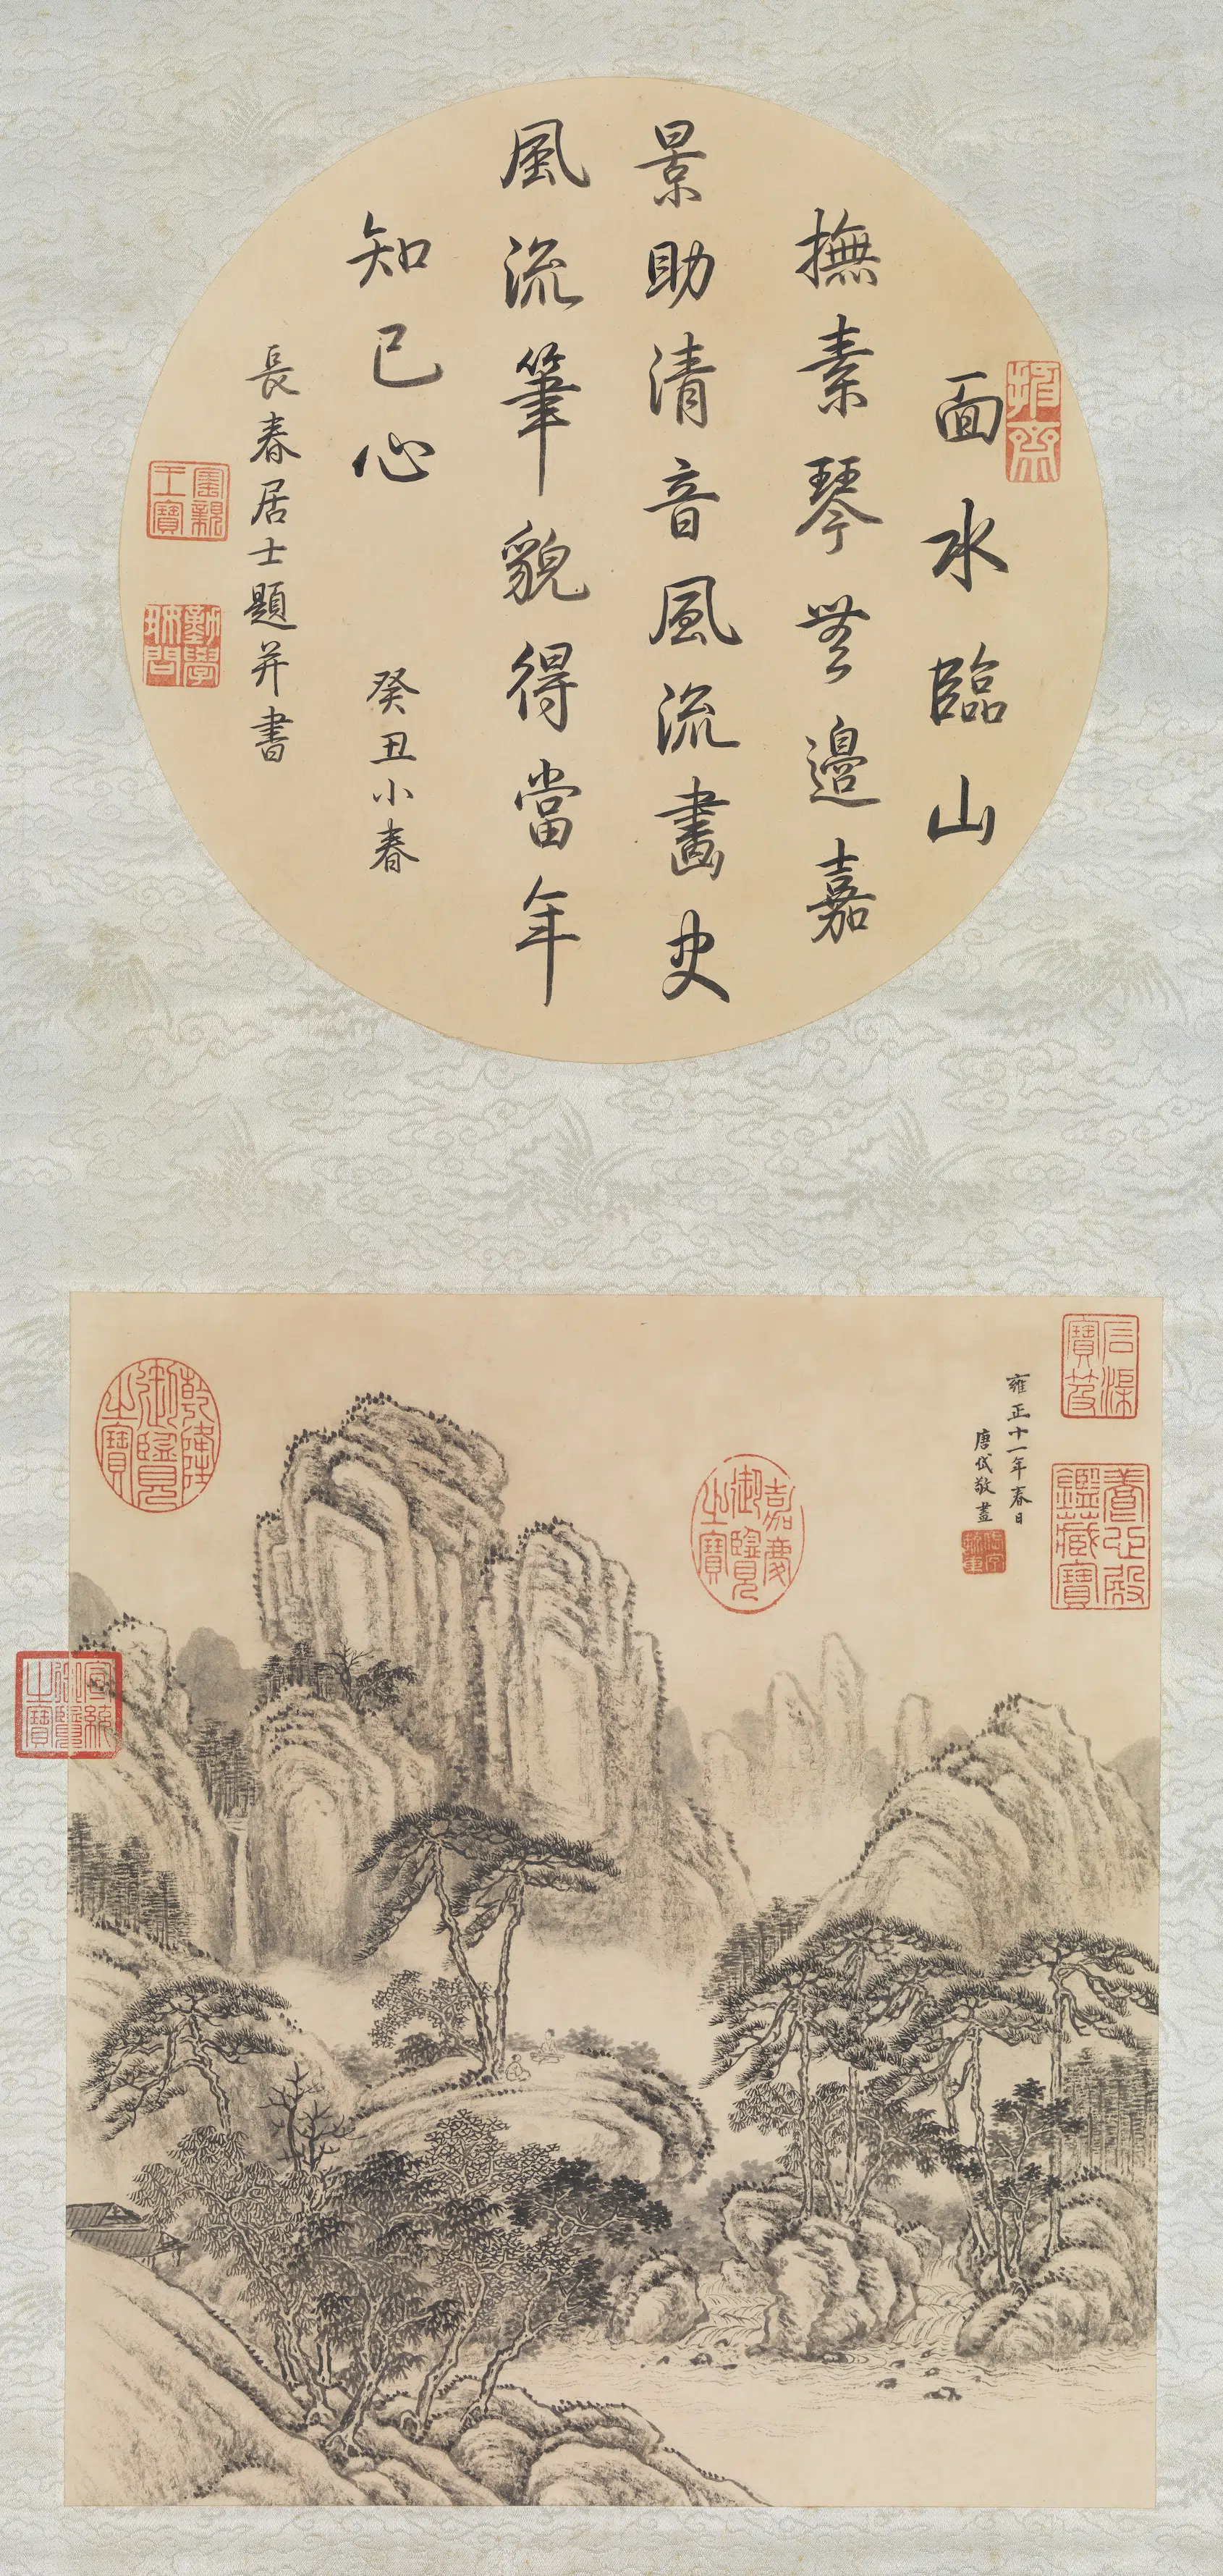 面水臨山
撫素琴無邊嘉
景助清音風流畫史
風流筆貌得當年
知己心
癸丑小春
長春居士題并書
寶親王寶
勤學好問
雍正十一年春日
唐岱敬畫
乾隆御覽之寶
嘉慶御覽之寶
石渠寶笈
養心殿鑑藏寶
宣統御覽之寶